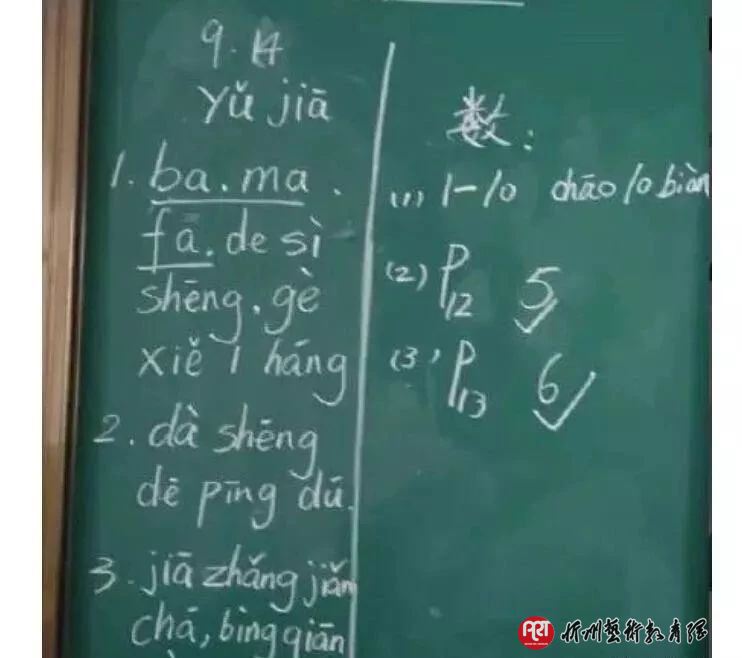 9.14
Yǔ jiā
1. ba.ma.
fā.de sì
shēng.gè
xiě 1 háng
2. dà shēng
dē pīng dú.
3. jiā zhǎng jiǎn
chá, bìng qiān
数:
(1) 1-10 chāo 10 biàn
(2) P12 5✓
(3) P13 6✓
ART 忻州藝術教育院